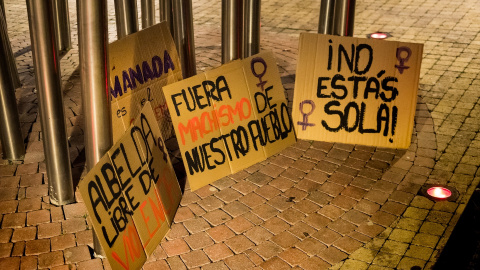 MANADA
ALBELDA
LIBRE DE
FUERA
MACHISMO DE
NUESTRO PUEBLO
¡NO
ESTÁS
SOLA!